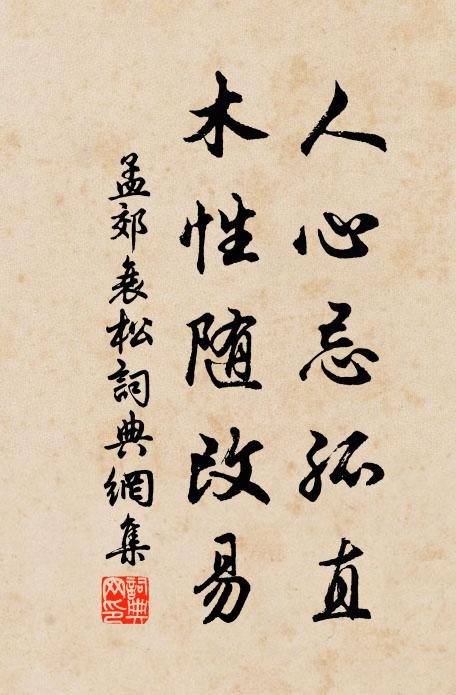 人心忌孤直
木性随改易
孟郊衰松詞典網集
詞典